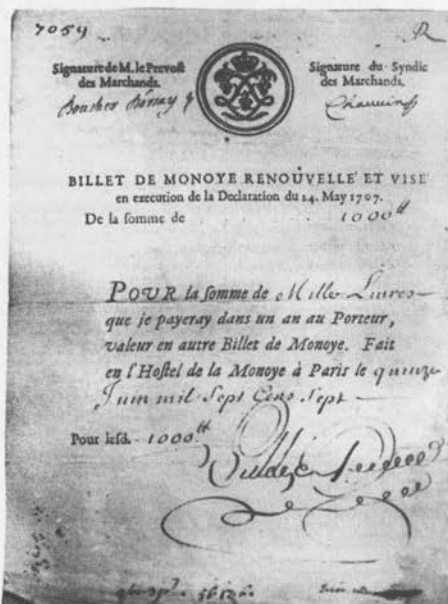 7059 R
Signature de M. le Prevost
des Marchands.
Signature du Syndic
des Marchands.
Boucher
Chauvin
BILLET DE MONOYE RENOUVELLE' ET VISE'
en execution de la Declaration du 24. May 1707.
De la somme de 1000tt
POUR la somme de Mille Livres
que je payeray dans un an au Porteur,
valeur en autre Billet de Monoye. Fait
en l'Hostel de la Monoye à Paris le quinze
Juin mil Sept Cens Sept
Pour lesd. 1000tt